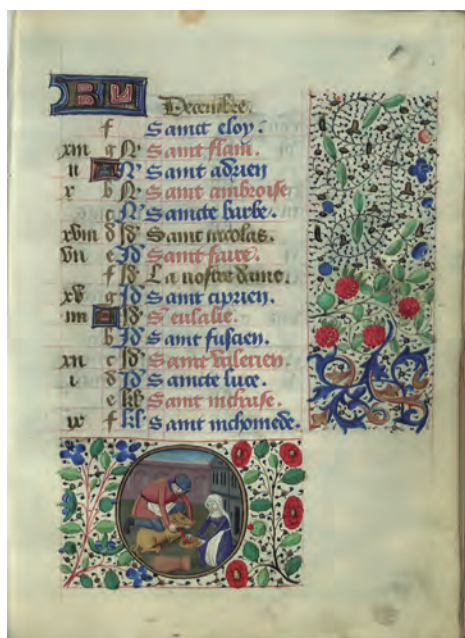 KL Decembre.
f Sainct eloy.
xiii g N' Saint flain.
ii A N' Saint adrien
x b N' Saint ambroise
c N' Saincte barbe.
xviii d Id' Saint nicolas.
vii e Id' Saint faire.
f Id' La nostre dame.
xv g Id Saint ciprien.
iiii A Id' S' eulalie.
b Id Saint fuscien.
xii c Id' Saint valerien.
i d Id Saincte luce.
e kl' Saint nichaise.
ix f kl' Saint nichomede.